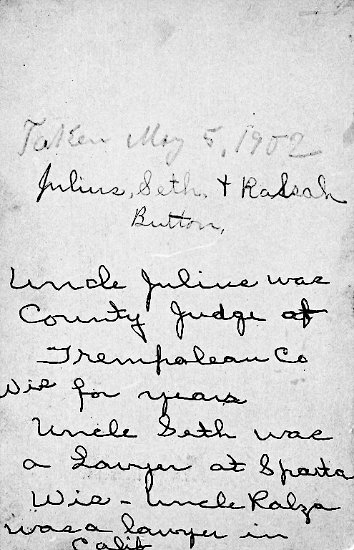 Taken May 5, 1902
Julius, Seth, + Ralsah
Button,
Uncle Julius was
County Judge of
Trempaleau Co
Wis for years
Uncle Seth was
a Lawyer at Sparta
Wis - Uncle Ralza
was a lawyer in
Calif